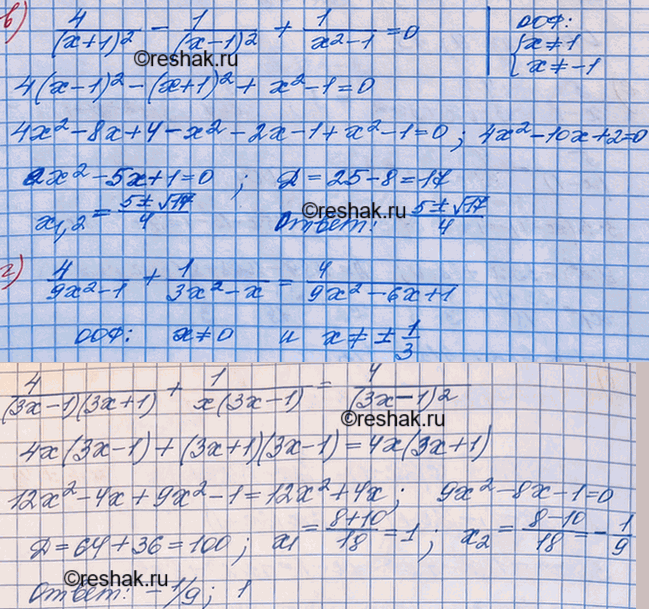 в) 4/(x+1)² - 1/(x-1)² + 1/(x²-1) = 0 | ООФ: { x ≠ 1
x ≠ -1
©reshak.ru
4(x-1)² - (x+1)² + x² - 1 = 0
4x² - 8x + 4 - x² - 2x - 1 + x² - 1 = 0 ; 4x² - 10x + 2 = 0
2x² - 5x + 1 = 0 ; Д = 25 - 8 = 17
x1,2 = (5 ± √17)/4 Ответ: (5 ± √17)/4
©reshak.ru
г) 4/(9x²-1) + 1/(3x²-x) = 4/(9x²-6x+1)
ООФ: x ≠ 0 и x ≠ ± 1/3
4/((3x-1)(3x+1)) + 1/(x(3x-1)) = 4/(3x-1)²
©reshak.ru
4x(3x-1) + (3x+1)(3x-1) = 4x(3x+1)
12x² - 4x + 9x² - 1 = 12x² + 4x ; 9x² - 8x - 1 = 0
Д = 64 + 36 = 100 ; x1 = (8+10)/18 = 1 ; x2 = (8-10)/18 = -1/9
©reshak.ru
Ответ: -1/9 ; 1